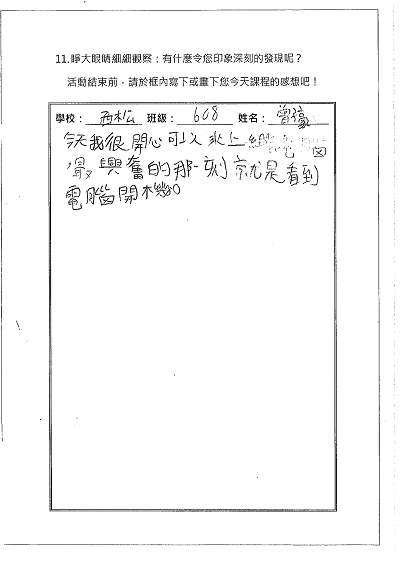 11.睜大眼睛細細觀察：有什麼令您印象深刻的發現呢？
活動結束前，請於框內寫下或畫下您今天課程的感想吧！
學校：西松 班級：608 姓名：曾
今天我很開心可以
最興奮的那一刻就是看到
電腦開機。